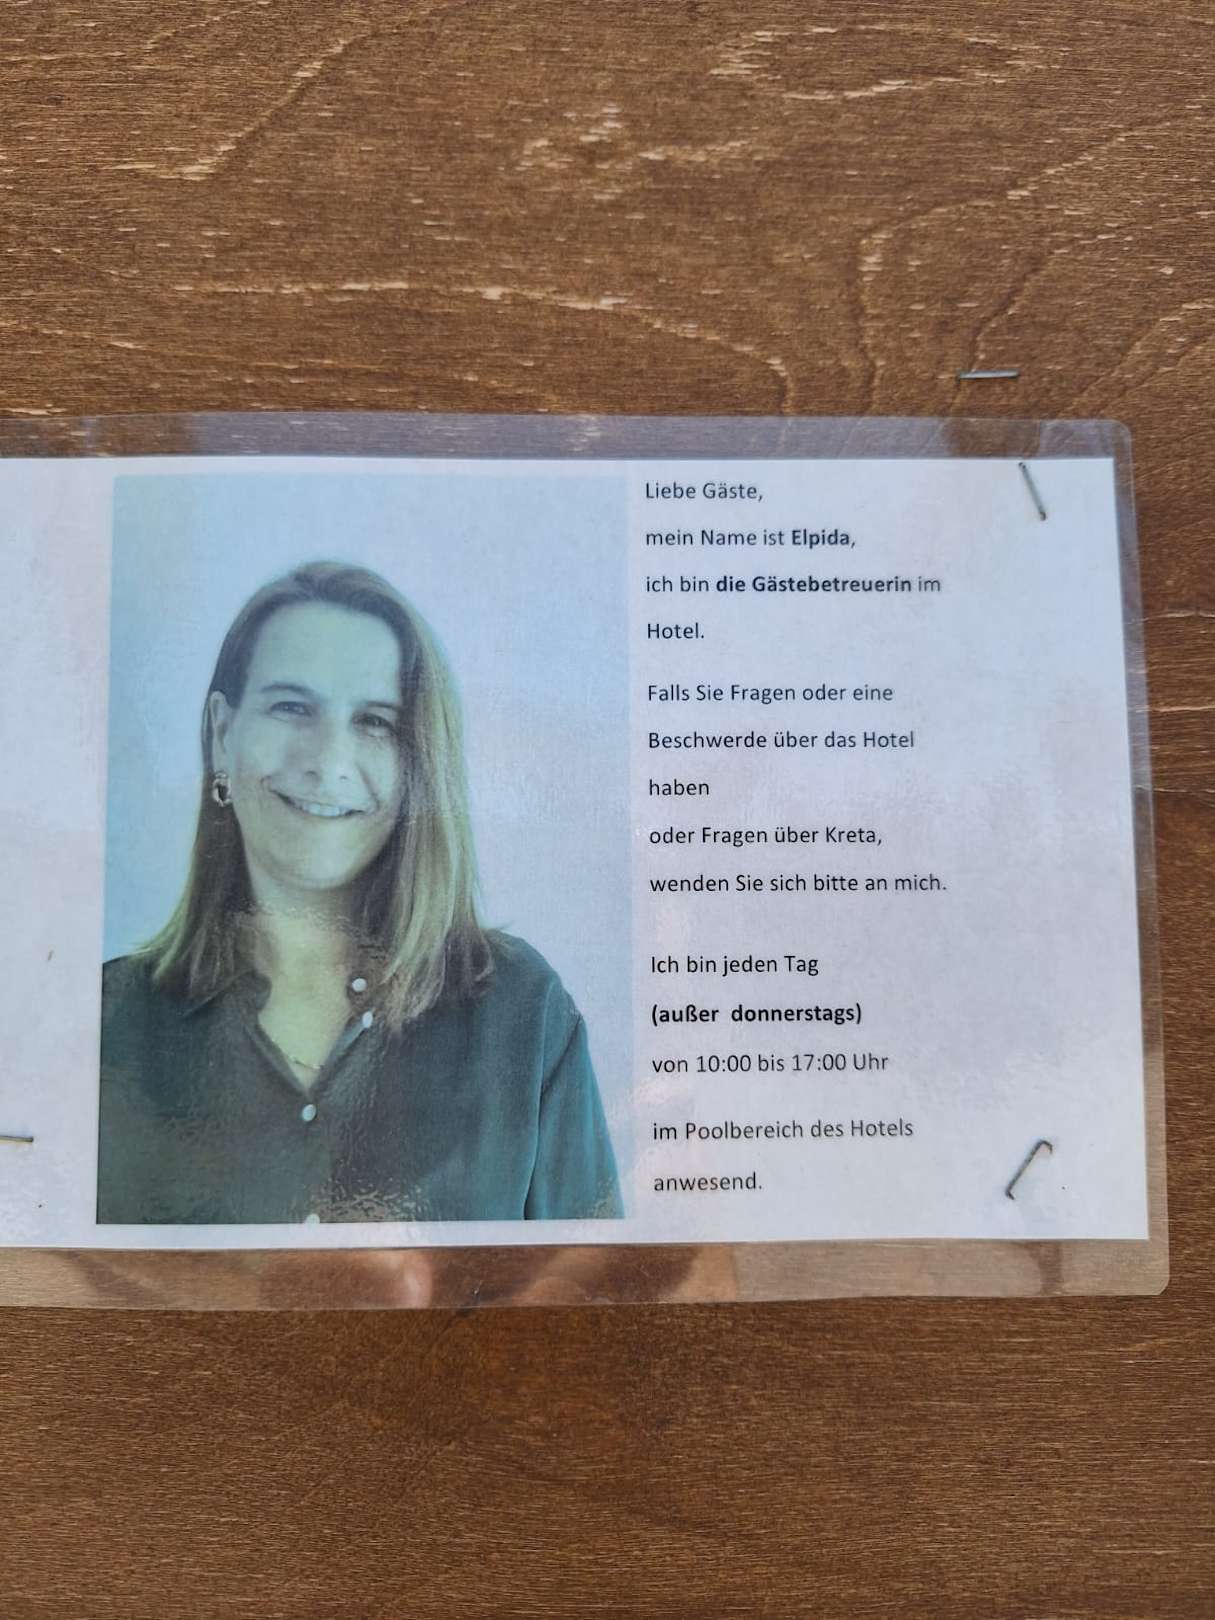 Liebe Gäste,
mein Name ist Elpida,
ich bin die Gästebetreuerin im
Hotel.
Falls Sie Fragen oder eine
Beschwerde über das Hotel
haben
oder Fragen über Kreta,
wenden Sie sich bitte an mich.
Ich bin jeden Tag
(außer donnerstags)
von 10:00 bis 17:00 Uhr
im Poolbereich des Hotels
anwesend.